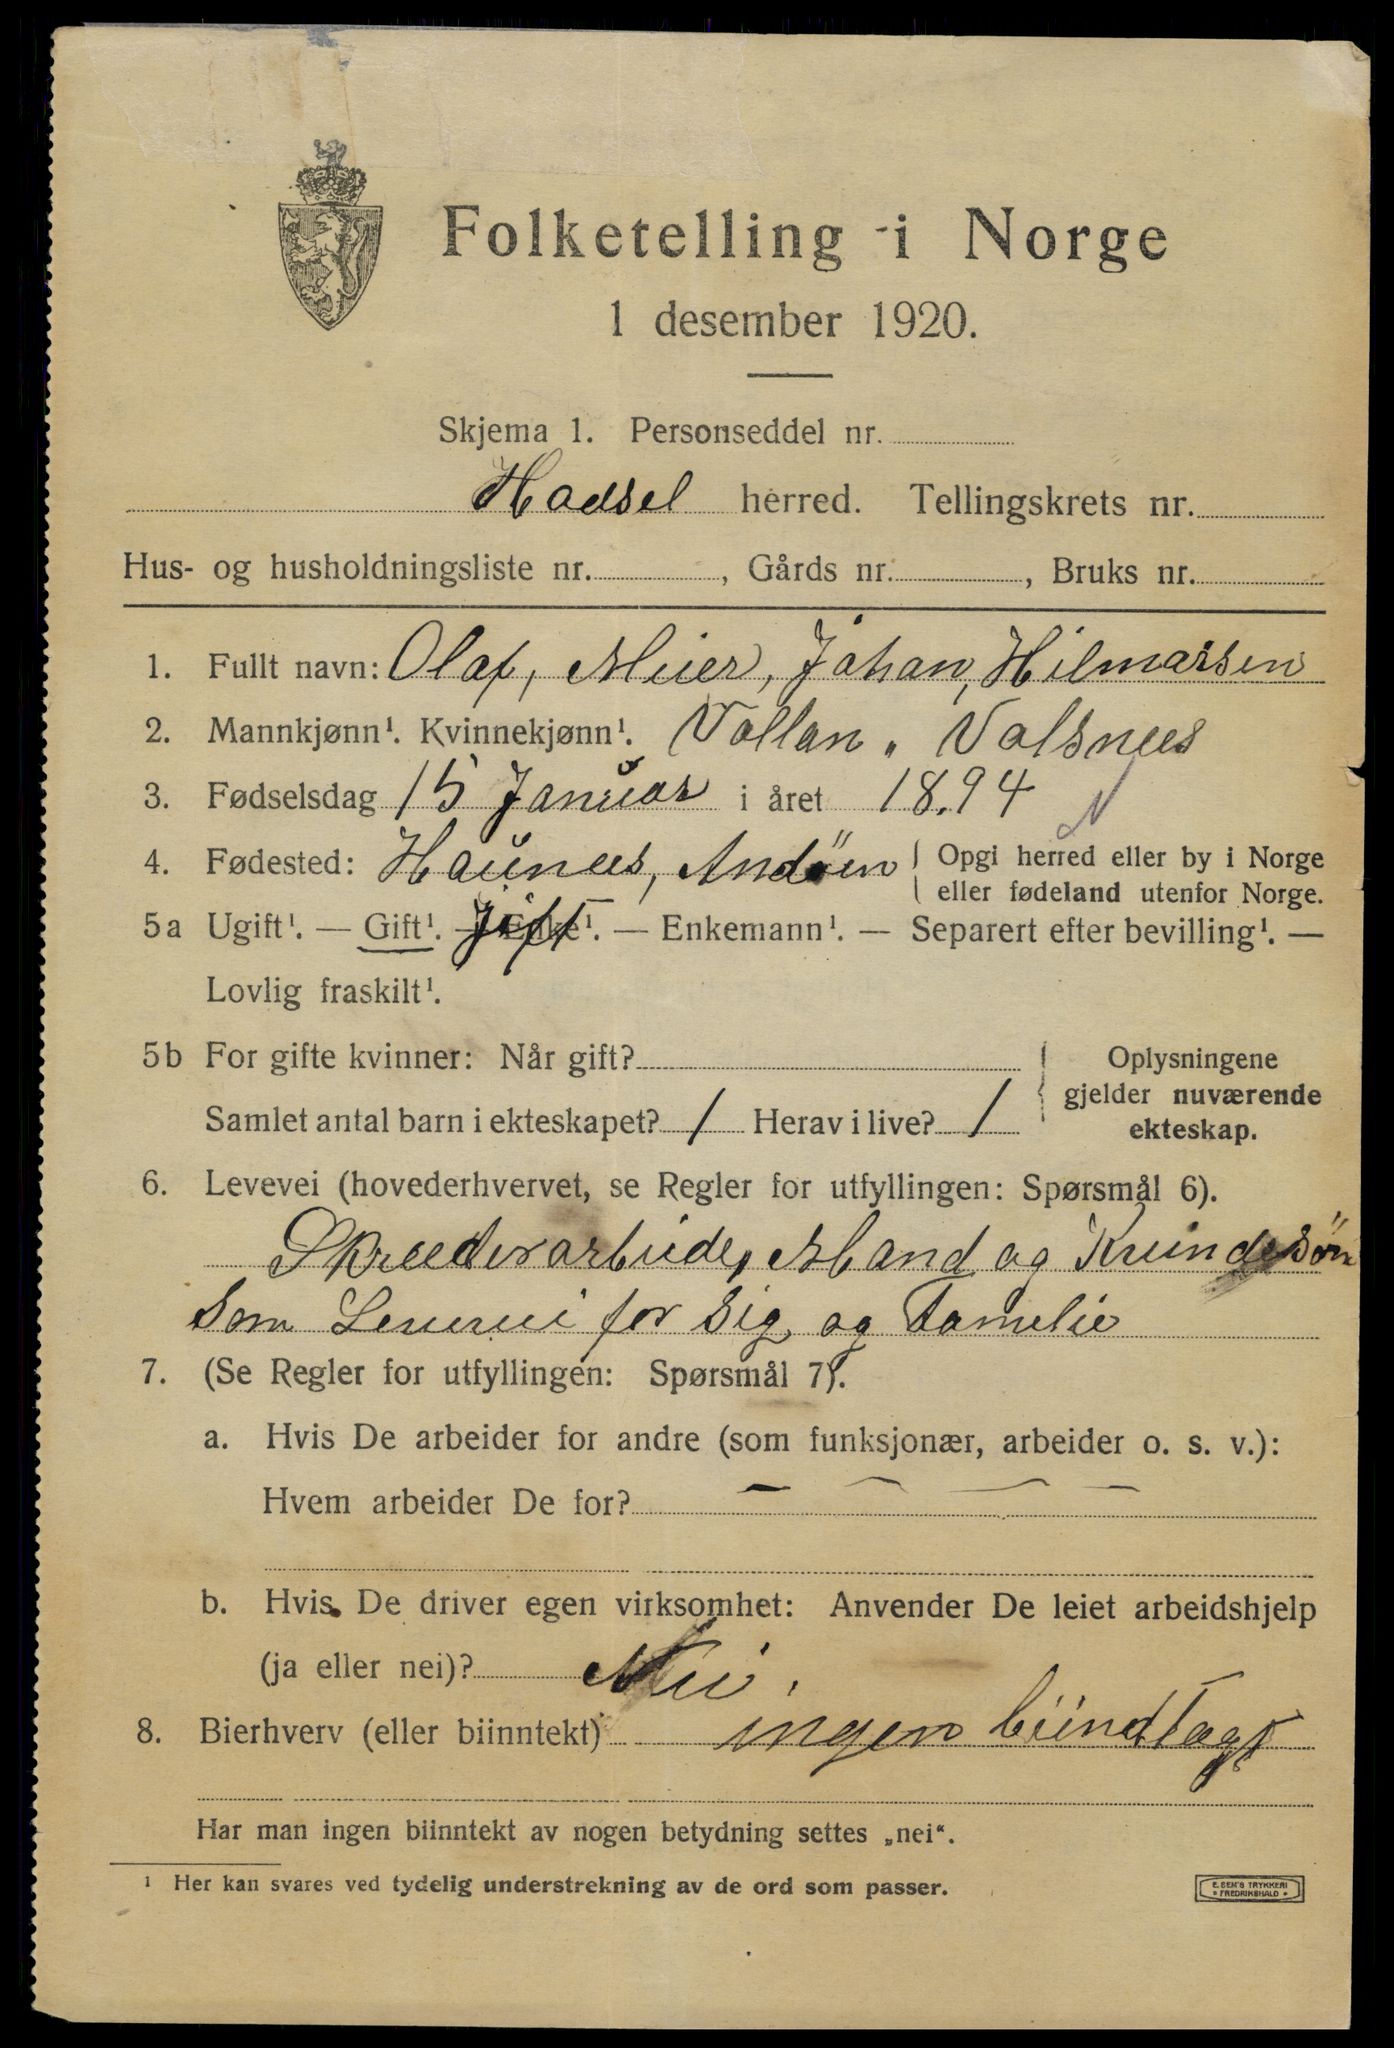 Folketelling i Norge
1 desember 1920.
Skjema 1. Personseddel nr.
Hadsel herred. Tellingskrets nr.
Hus- og husholdningsliste nr. , Gårds nr. , Bruks nr.
1. Fullt navn: Olaf, Meier, Johan, Hilmarsen
2. Mannkjønn¹. Kvinnekjønn¹. Vollan. Valsnees
3. Fødselsdag 15 Januar i året 18.94
4. Fødested: Haunees, Andöen Opgi herred eller by i Norge
eller fødeland utenfor Norge.
5a Ugift¹. — Gift¹. Jift Enke¹. — Enkemann¹. — Separert efter bevilling¹. —
Lovlig fraskilt¹.
5b For gifte kvinner: Når gift? Oplysningene
gjelder nuværende
Samlet antal barn i ekteskapet? 1 Herav i live? 1 ekteskap.
6. Levevei (hovederhvervet, se Regler for utfyllingen: Spørsmål 6).
Skreederarbeide, Mand og Kvindesön
som Leuevei for sig og Famelie
7. (Se Regler for utfyllingen: Spørsmål 7).
a. Hvis De arbeider for andre (som funksjonær, arbeider o. s. v.):
Hvem arbeider De for? — — — —
b. Hvis De driver egen virksomhet: Anvender De leiet arbeidshjelp
(ja eller nei)? Nei.
8. Bierhverv (eller biinntekt) ingen biindtagt
Har man ingen biinntekt av nogen betydning settes „nei“.
¹ Her kan svares ved tydelig understrekning av de ord som passer.
E. SEM'S TRYKKERI
FREDRIKSHALD